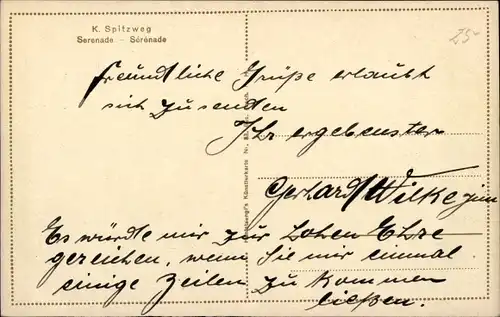 K. Spitzweg
Serenade – Sérénade
25-
freundliche Grüße erlaubt
sich zu senden
Ihr ergebenster
Gerhard Wilke jun
Es würde mir zur hohen Ehre
gereichen, wenn Sie mir einmal
einige Zeilen zu kommen
ließen.
Künstlerkarte Nr.